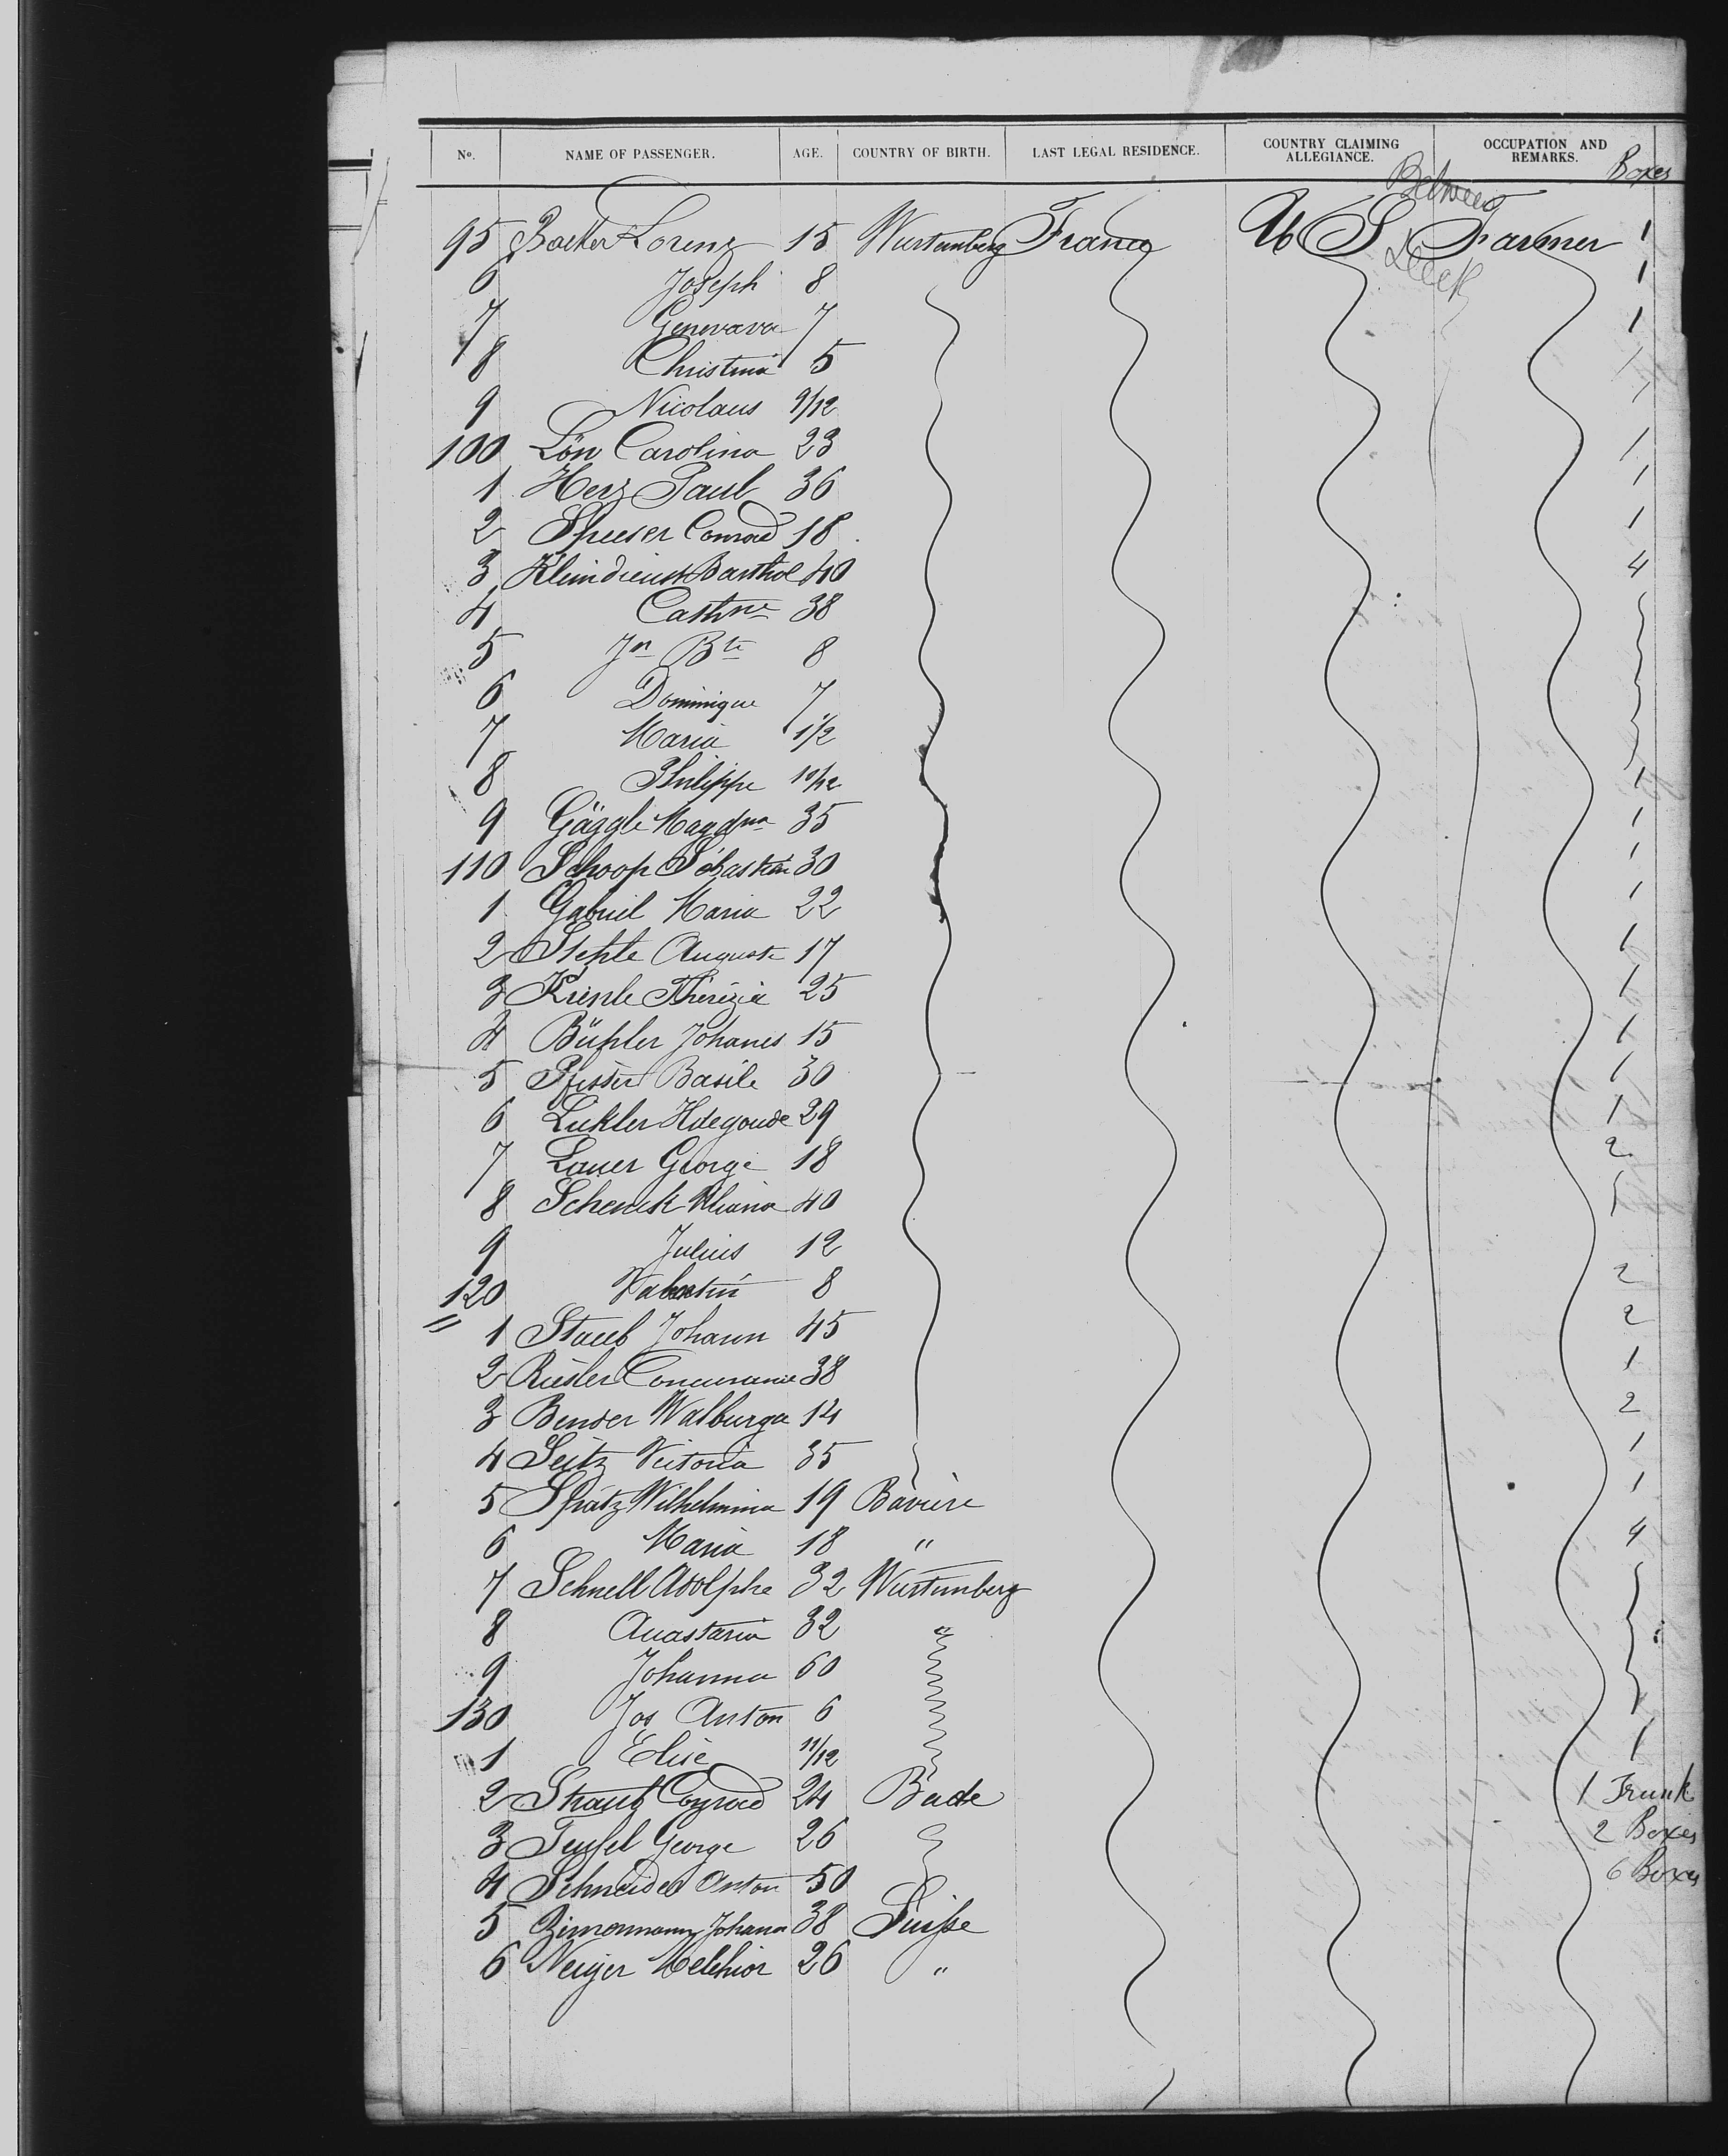 No. NAME OF PASSENGER. AGE. COUNTRY OF BIRTH. LAST LEGAL RESIDENCE. COUNTRY CLAIMING ALLEGIANCE. OCCUPATION AND REMARKS. Boxes
Between
95 Lorenz 15 Wurtemberg France U S Farmer 1
Deck
6 Joseph 8 1
7 Genevava 7 1
8 Christina 5 1
9 Nicolaus 9/12 1
100 Lön Carolina 23 1
1 Herz Paul 36 1
2 Speeser Conrad 18 1
3 Kleindienst Barthol 40 4
4 Cathne 38
5 Jn Bte 8
6 Dominique 7
7 Maria 1 1/2
8 Philippe 10/12 1
9 Gäggle Magdna 35 1
110 Schoop Sebastian 30 1
1 Gabriel Maria 22 1
2 Stehle Auguste 17 1
3 Kienle Therezia 25 1
4 Bühler Johanes 15 1
5 Pfister Basile 30 1
6 Lukler Hdegonde 29 1
7 Lauer George 18 2
8 Schenck 40
9 Julius 12
120 Valentin 8 2
" 1 Staub Johann 45 2
2 Riesler 38 1
3 Bender Walburga 14 2
4 Seitz Victoria 35 1
5 Spatz Wilhelmina 19 Baviere 1
6 Maria 18 " 4
7 Schnell Adolphe 32 Wurtemberg
8 Anastasia 32 "
9 Johanna 60
130 Jos Anton 6
1 Elise 11/12 1
2 Straub Conrad 24 Bade 1 Trunk
3 Teufel George 26 2 Boxes
4 Schneider Anton 50 6 Boxes
5 Zimmermann Johana 38 Suisse
6 Neiger Melchior 26 "